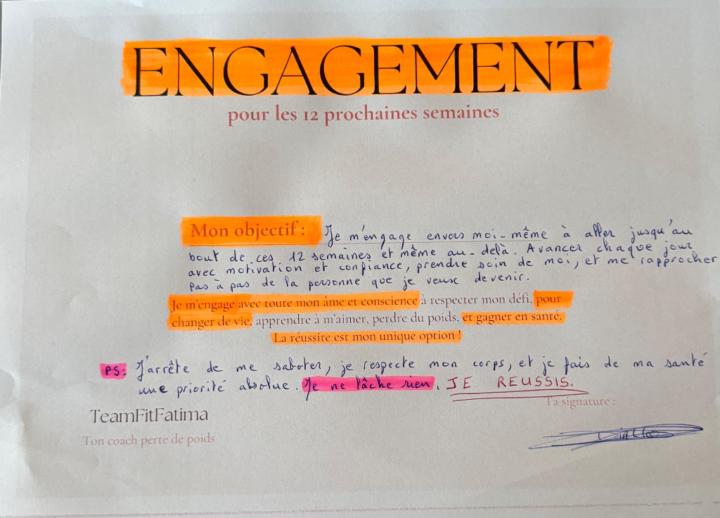 ENGAGEMENT
pour les 12 prochaines semaines
Mon objectif : Je m'engage envers moi-même à aller jusqu'au
bout de ces 12 semaines et même au-delà. Avancer chaque jour
avec motivation et confiance, prendre soin de moi, et me rapprocher
pas à pas de la personne que je veux devenir.
Je m'engage avec toute mon âme et conscience à respecter mon défi, pour
changer de vie, apprendre à m'aimer, perdre du poids, et gagner en santé.
La réussite est mon unique option !
PS: J'arrête de me saboter, je respecte mon corps, et je fais de ma santé
une priorité absolue. Je ne lâche rien, JE REUSSIS.
Ta signature :
TeamFitFatima
Ton coach perte de poids